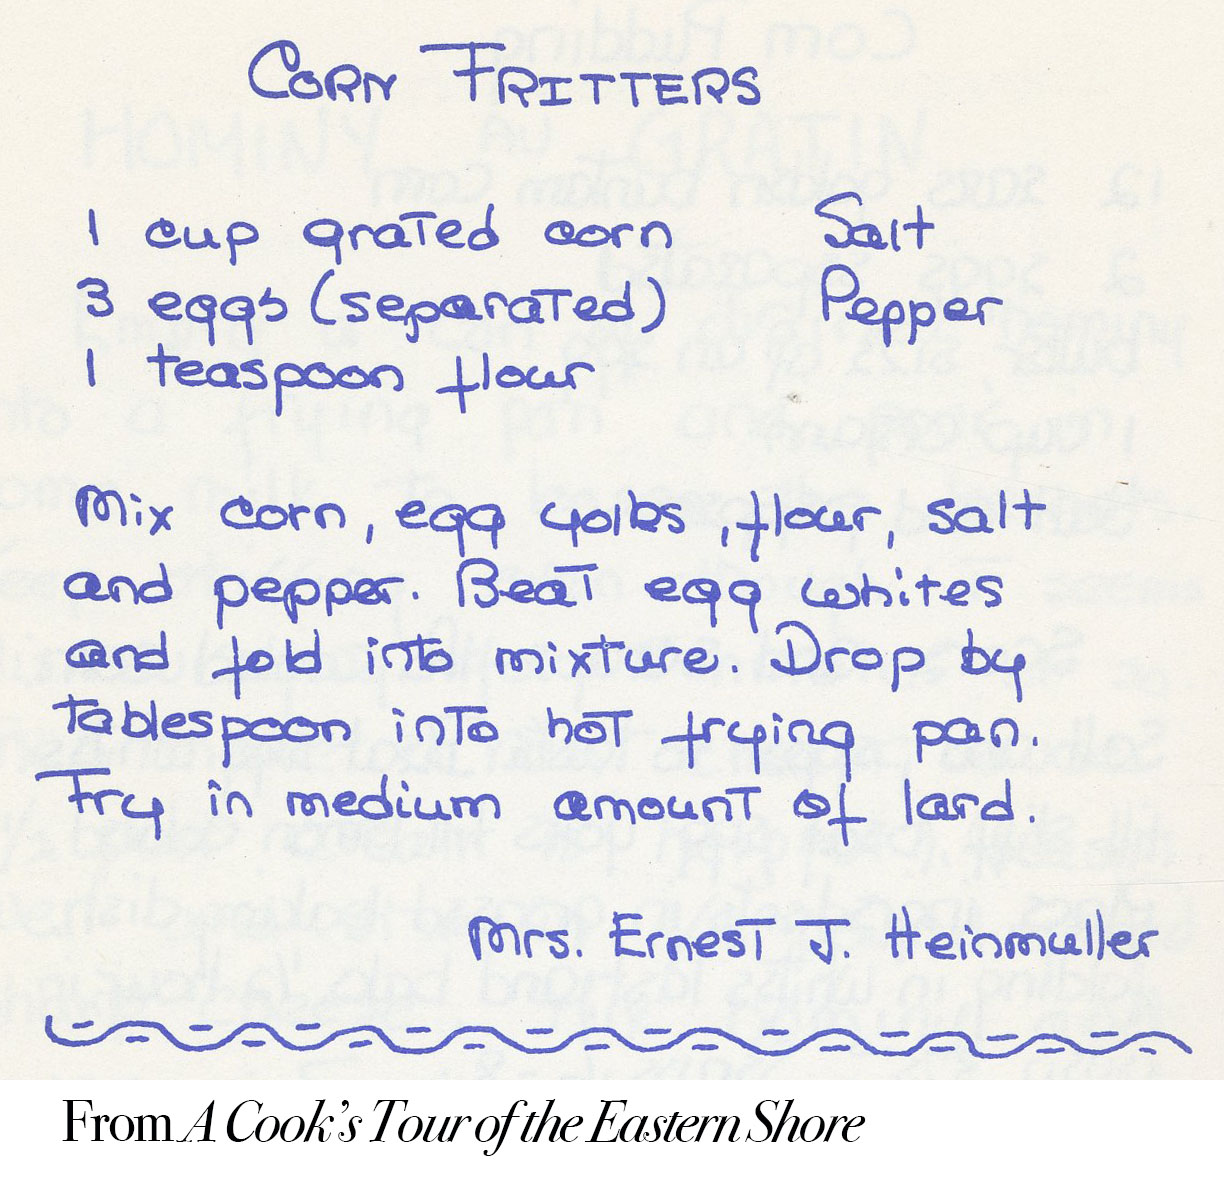 CORN FRITTERS
1 cup grated corn Salt
3 eggs (separated) Pepper
1 teaspoon flour
Mix corn, egg yolks, flour, salt
and pepper. Beat egg whites
and fold into mixture. Drop by
tablespoon into hot frying pan.
Fry in medium amount of lard.
Mrs. Ernest J. Heinmuller
From A Cook's Tour of the Eastern Shore